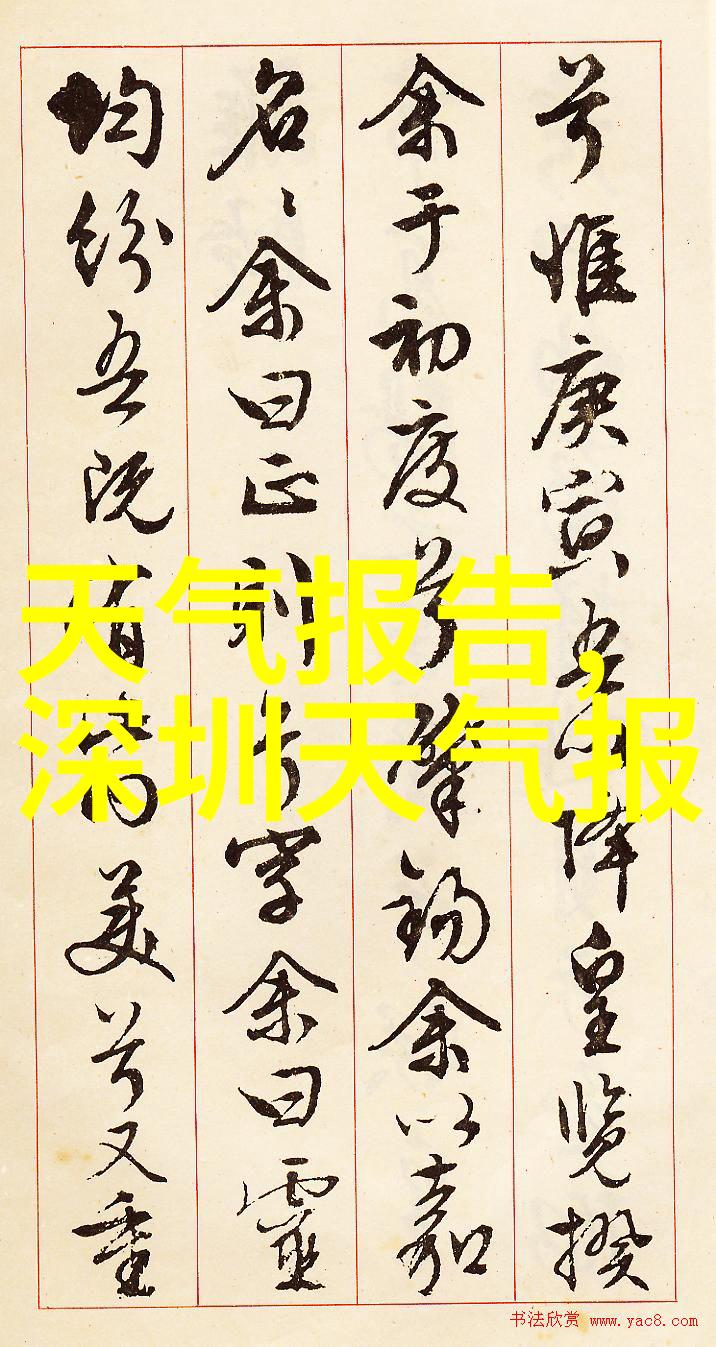 兮惟庚寅吾以降皇覽揆
余于初度兮肇錫余以嘉
名〻余曰正則兮字余曰靈
均紛吾既有此内美兮又重
天气报告,
深圳天气报
书法欣赏 www.yac8.com